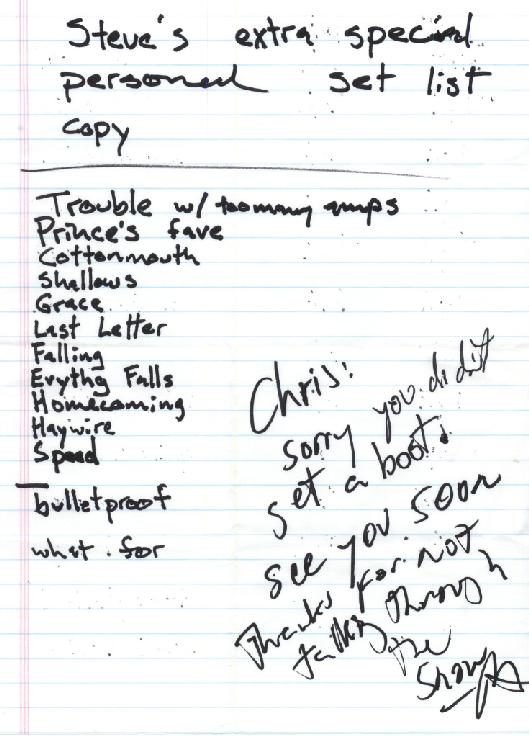 Steve's extra special
personal set list
copy
Trouble w/ toomany amps
Prince's fave
Cottonmouth
Shallows
Grace
Last Letter
Falling
Erythg Falls
Homecoming
Haywire
Speed
bulletproof
what for
Chris:
sorry you didn't
get a boot.
see you soon
Thanks for not
talking through
the
show